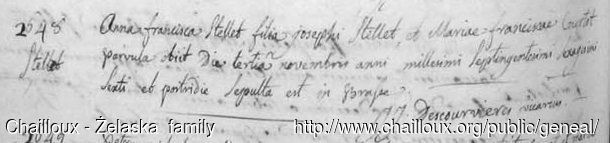 2648 Anna francisca Stellet filia Josephi Stellet, et Mariae franciscae
Stellet parvula obiit Die tertia novembris anni millesimi Septingentesimi sexagesimi
sexti et postridie sepulta est in
Descourvieres vicarius
Chailloux - Żelaska family http://www.chailloux.org/public/geneal/
2649